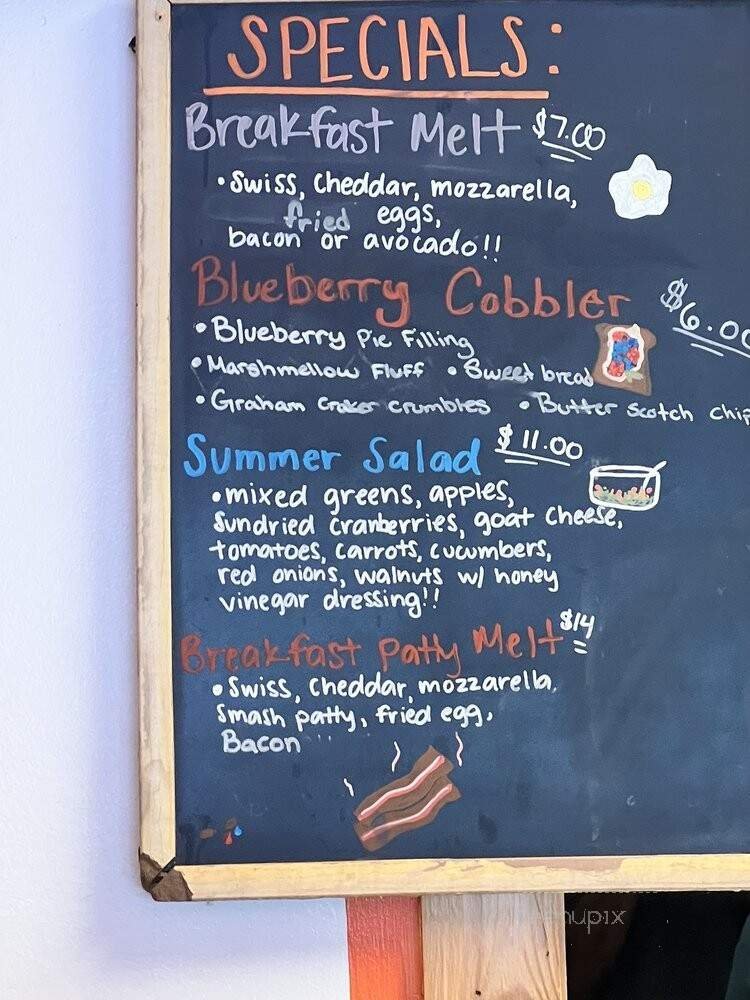 SPECIALS:
Breakfast Melt $7.00
• Swiss, cheddar, mozzarella,
fried eggs,
bacon or avocado!!
Blueberry Cobbler $6.00
• Blueberry Pie Filling
• Marshmellow Fluff • Sweet bread
• Graham Craker crumbles • Butter scotch chip
Summer Salad $11.00
• mixed greens, apples,
sundried cranberries, goat cheese,
tomatoes, carrots, cucumbers,
red onions, walnuts w/ honey
vinegar dressing!!
Breakfast Patty Melt $14
• Swiss, cheddar, mozzarella,
Smash patty, fried egg,
Bacon